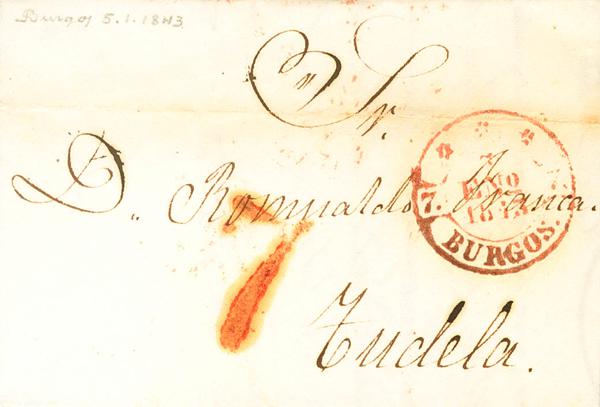 Burgos 5.1.1843
Sr.
D.. Romualdo Franca.
7
Tudela.
7.
ENO
1843
BURGOS.